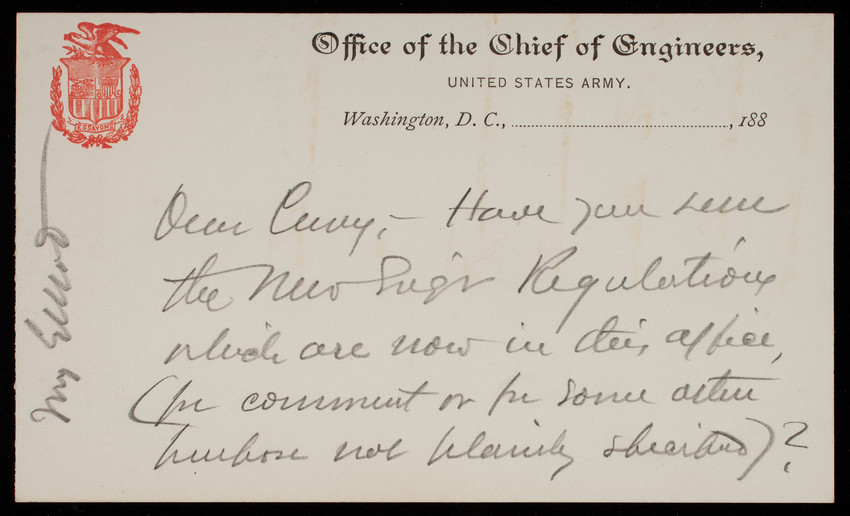 Office of the Chief of Engineers,
UNITED STATES ARMY.
Washington, D. C., ........................................, 188
ESSAYONS
Dear Casey, – Have you seen
the New Eng'r Regulations
which are now in this office,
(for comment or for some other
purpose not plainly specified)?